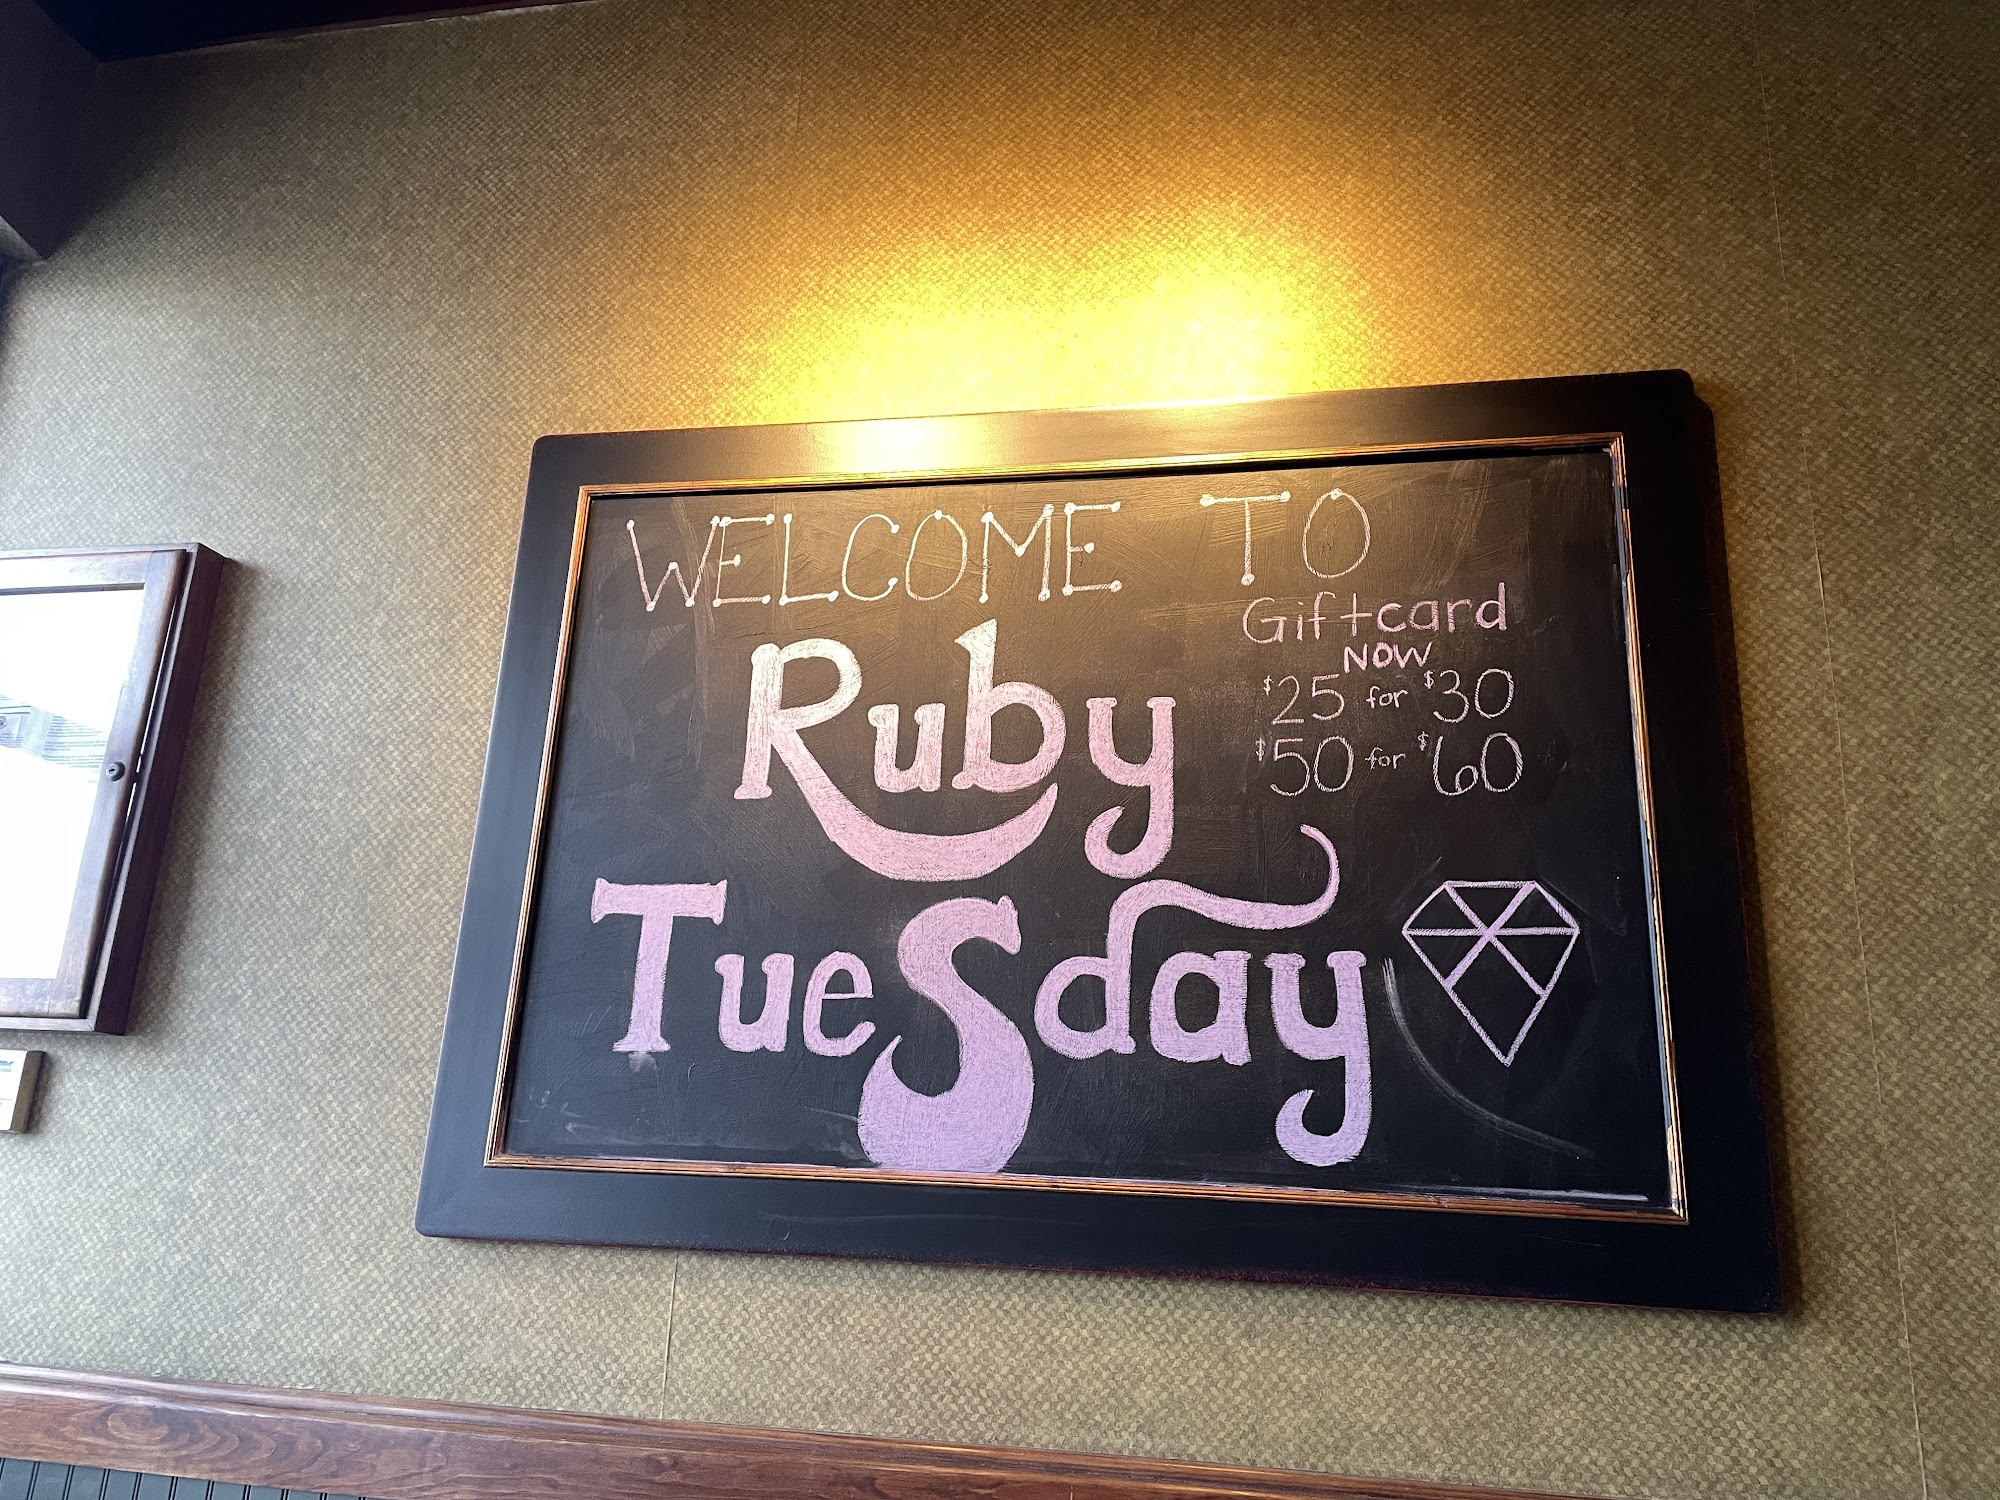 WELCOME TO
Ruby
TueSday
Giftcard
NOW
$25 for $30
$50 for $60